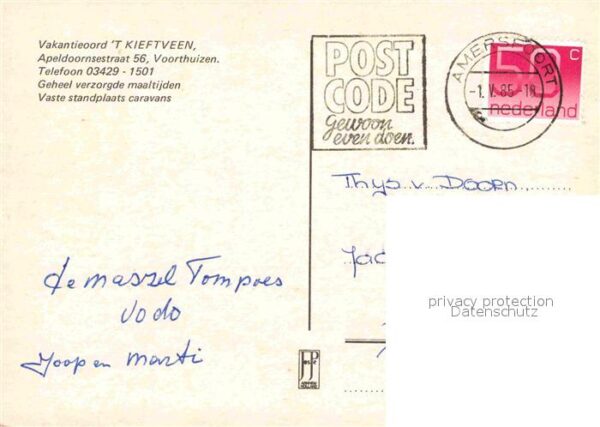 Vakantieoord 'T KIEFTVEEN,
Apeldoornsestraat 56, Voorthuizen.
Telefoon 03429 - 1501
Geheel verzorgde maaltijden
Vaste standplaats caravans
POST
CODE
Gewoon
even doen.
AMERSFOORT
-1.V.85-18
50 c
nederland
Thijs v Doorn
Jac
de maszel Tompoes
Jodo
Joop en Marti
privacy protection
Datenschutz